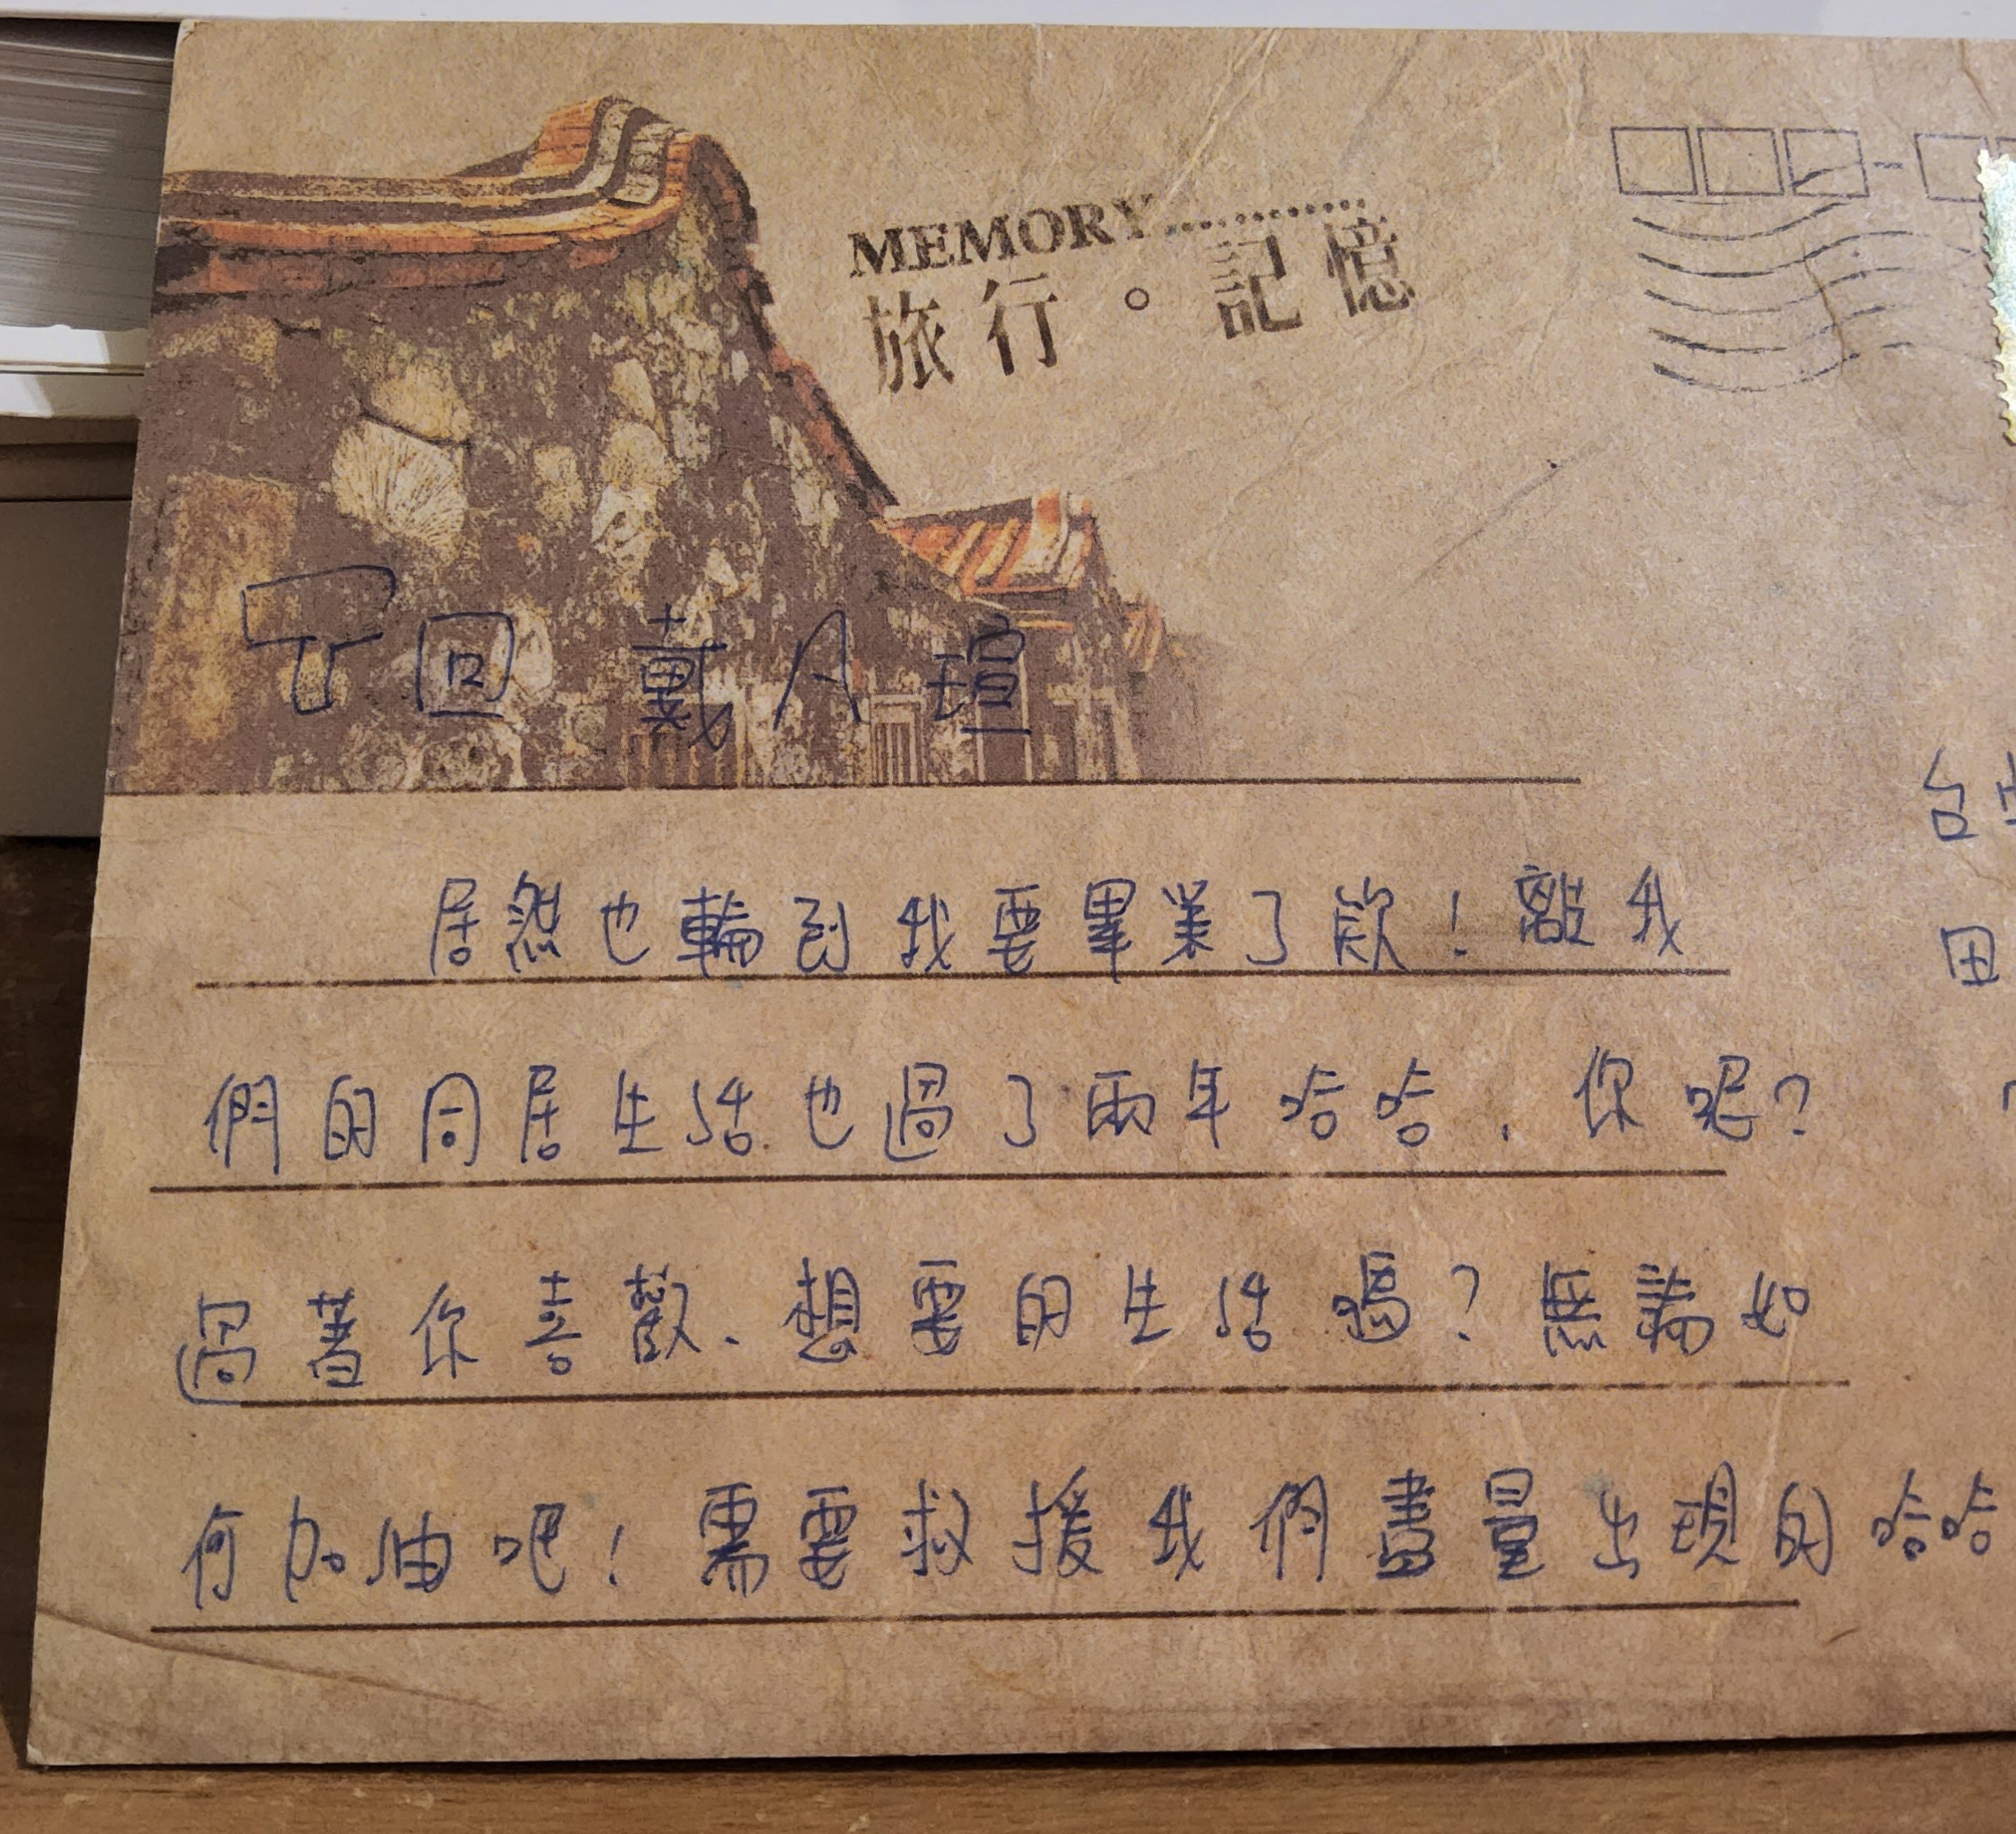 MEMORY............
旅行。記憶
T回 戴A瑄
居然也輪到我要畢業了欸!離我
們的同居生活也過了兩年哈哈.你呢?
過著你喜歡、想要的生活嗎?無論如
何加油吧!需要救援我們盡量出現的哈哈
台
田